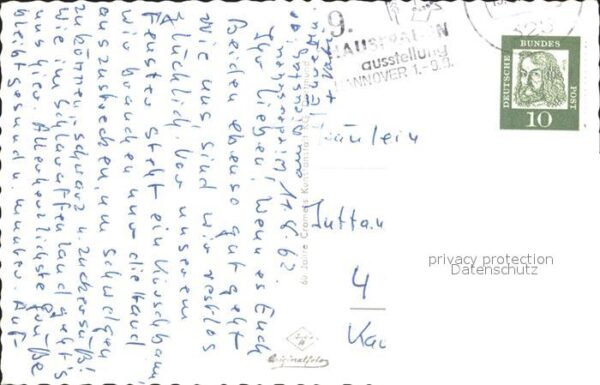 9.
HAUSFRAUEN
ausstellung
HANNOVER 1.-9.9.
DEUTSCHE BUNDES POST
10
Ihr Lieben, wenn es Euch
Beiden ebenso gut geht
wie uns sind wir restlos
glücklich. Vor unserem
Fenster steht ein Kirschbaum
wir brauchen nur die Hand
auszustrecken, um schwelgen
zu können, schwarz u. zuckersüß!
wie im Schlaraffenland geht's
uns hier. Allerherzlichste Grüße
bleibt gesund u. munter. Auf
60 Jahre Cramers Kunstanstalt
Originalfoto
Fräulein
Jutta
4
privacy protection
Datenschutz